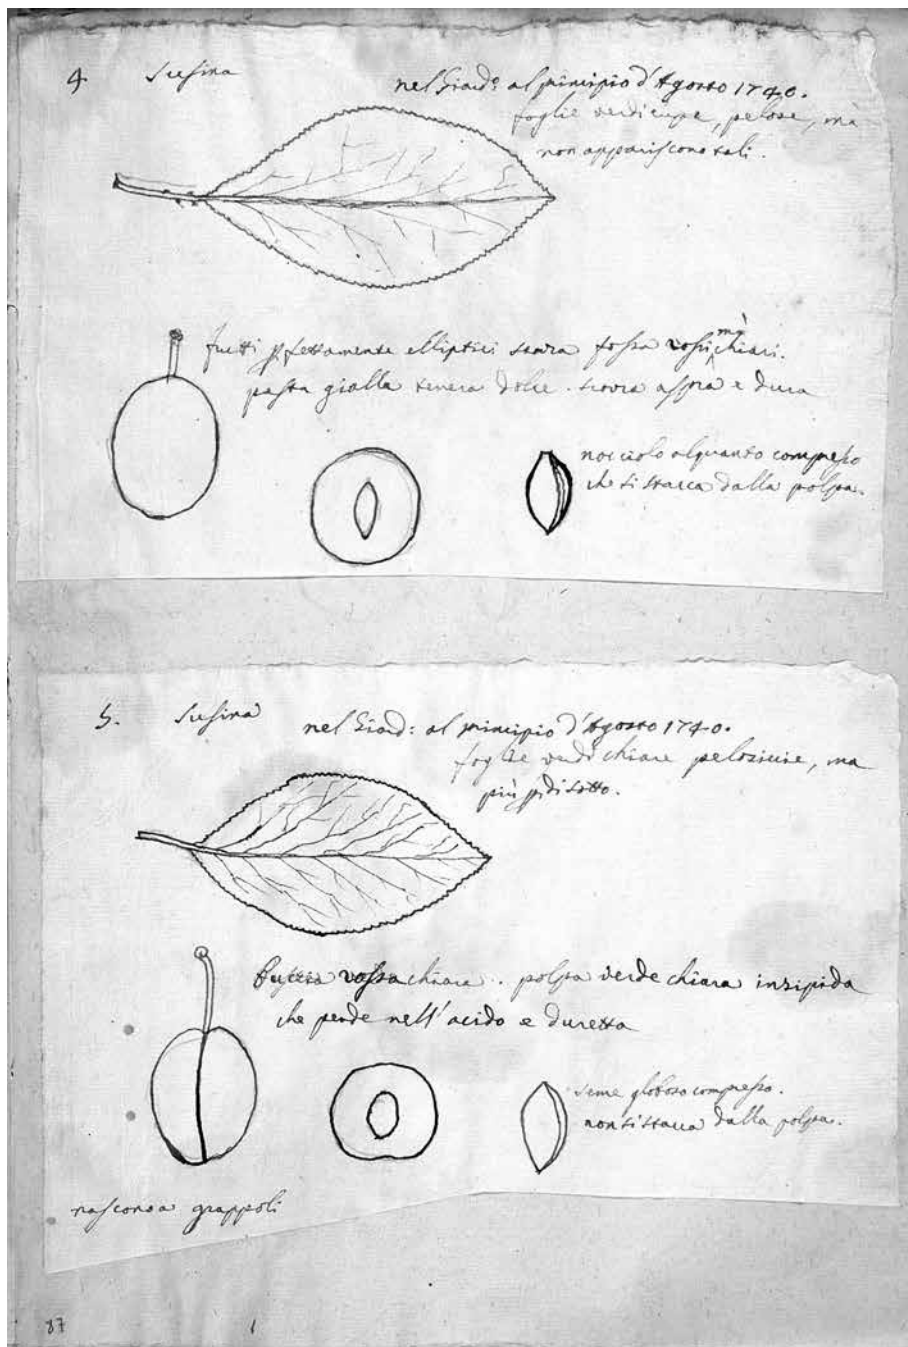 4. Susina
nel Giard: al principio d'Agosto 1740.
foglie verdi cupe, pelose, mà
non appariscono tali.
frutti pfettamente elliptici senza fossa rossi mà chiari.
pasta gialla tenera dolce. scorza assra e dura
nocciolo alquanto compresso
che si stacca dalla polpa.
5. Susina
nel Giard: al principio d'Agosto 1740.
foglie verdi chiare pelosine, ma
più p di sotto.
Buccia rossa chiara.. polpa verde chiara insipida
che pende nell'acido e duretta
seme globoso compresso.
non si stacca dalla polpa.
nascono a grappoli
87 1